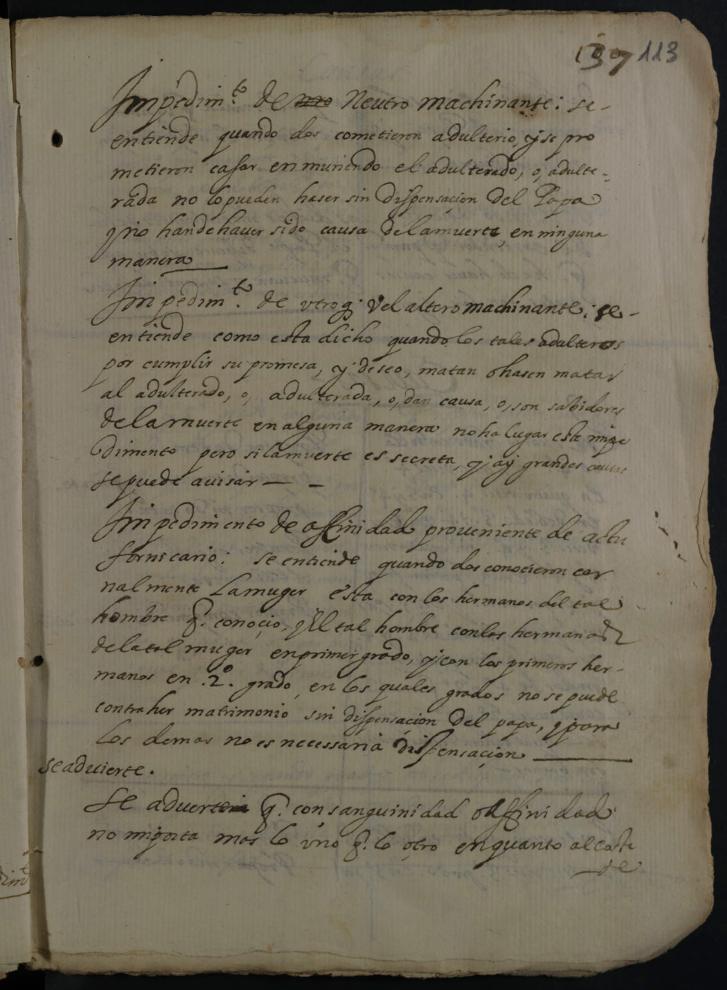 137 113
Impedim.to de Neutro machinante: se-
entiende quando dos cometieron adulterio, y se pro
metieron casar en muriendo el adulterado, o, adulte-
rada no lo pueden haser sin dispensaçion del Papa
y no han de haver sido causa de la muerte, en ninguna
manera
Impedim.to de utroq; vel altero machinante: se-
entiende como esta dicho quando los tales adulteros
por cumplir su promesa, y deseo, matan o hasen matar
al adulterado, o, adulterada, o, dan causa, o, son sabidores
de la muerte en alguna manera no ha lugar este impe
dimento pero si la muerte es secreta, y ay grandes causas
se puede avisar
Impedimento de affinidad proveniente de actu
fornicario: se entiende quando dos conocieron car
nalmente La muger esta con los hermanos del tal
hombre q. conoçio, y El tal hombre con las hermanas
de la tal muger en primer grado, y con los primos her-
manos en .2.º grado, en los quales grados no se puede
contraher matrimonio sin dispensaçion del papa, y para
los demas no es necessaria dispensaçion
se advierte.
Se advierte q. consanguinidad o affinidad
no importa mas lo uno q. lo otro en quanto al
de